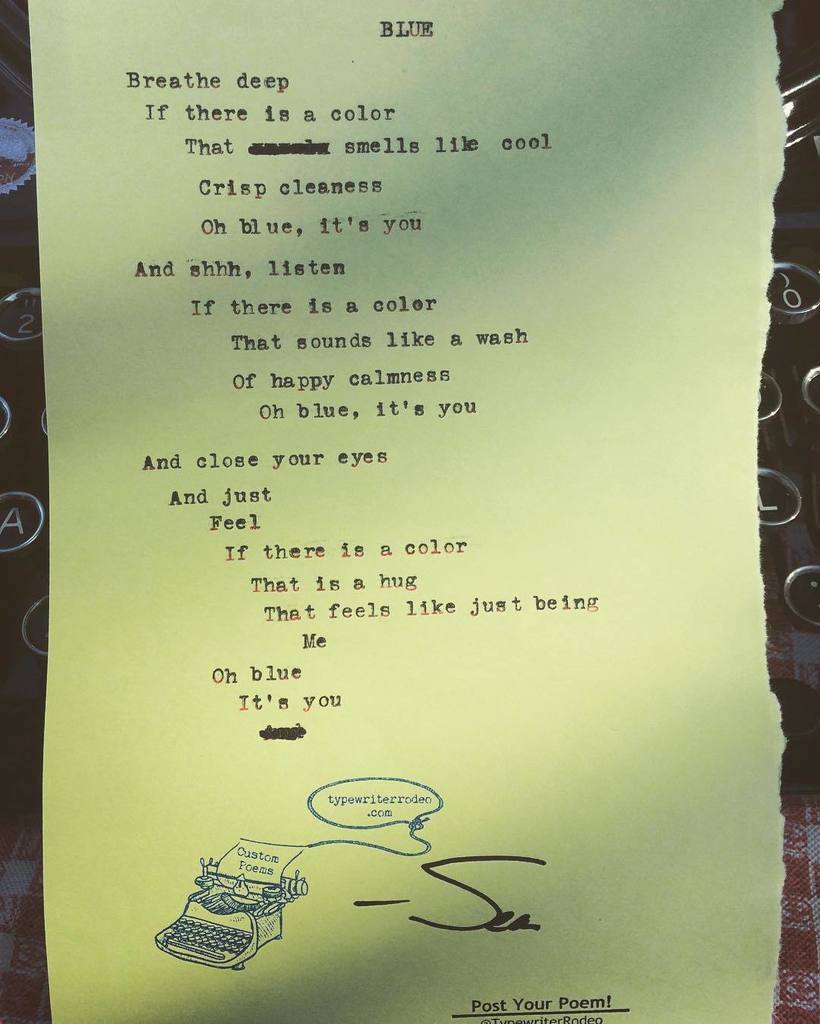 BLUE
Breathe deep
If there is a color
That smells like cool
Crisp cleaness
Oh blue, it's you
And shhh, listen
If there is a color
That sounds like a wash
Of happy calmness
Oh blue, it's you
And close your eyes
And just
Feel
If there is a color
That is a hug
That feels like just being
Me
Oh blue
It's you
typewriterrodeo
.com
Custom
Poems
- Sean
Post Your Poem!
@TypewriterRodeo
2
A
O
L